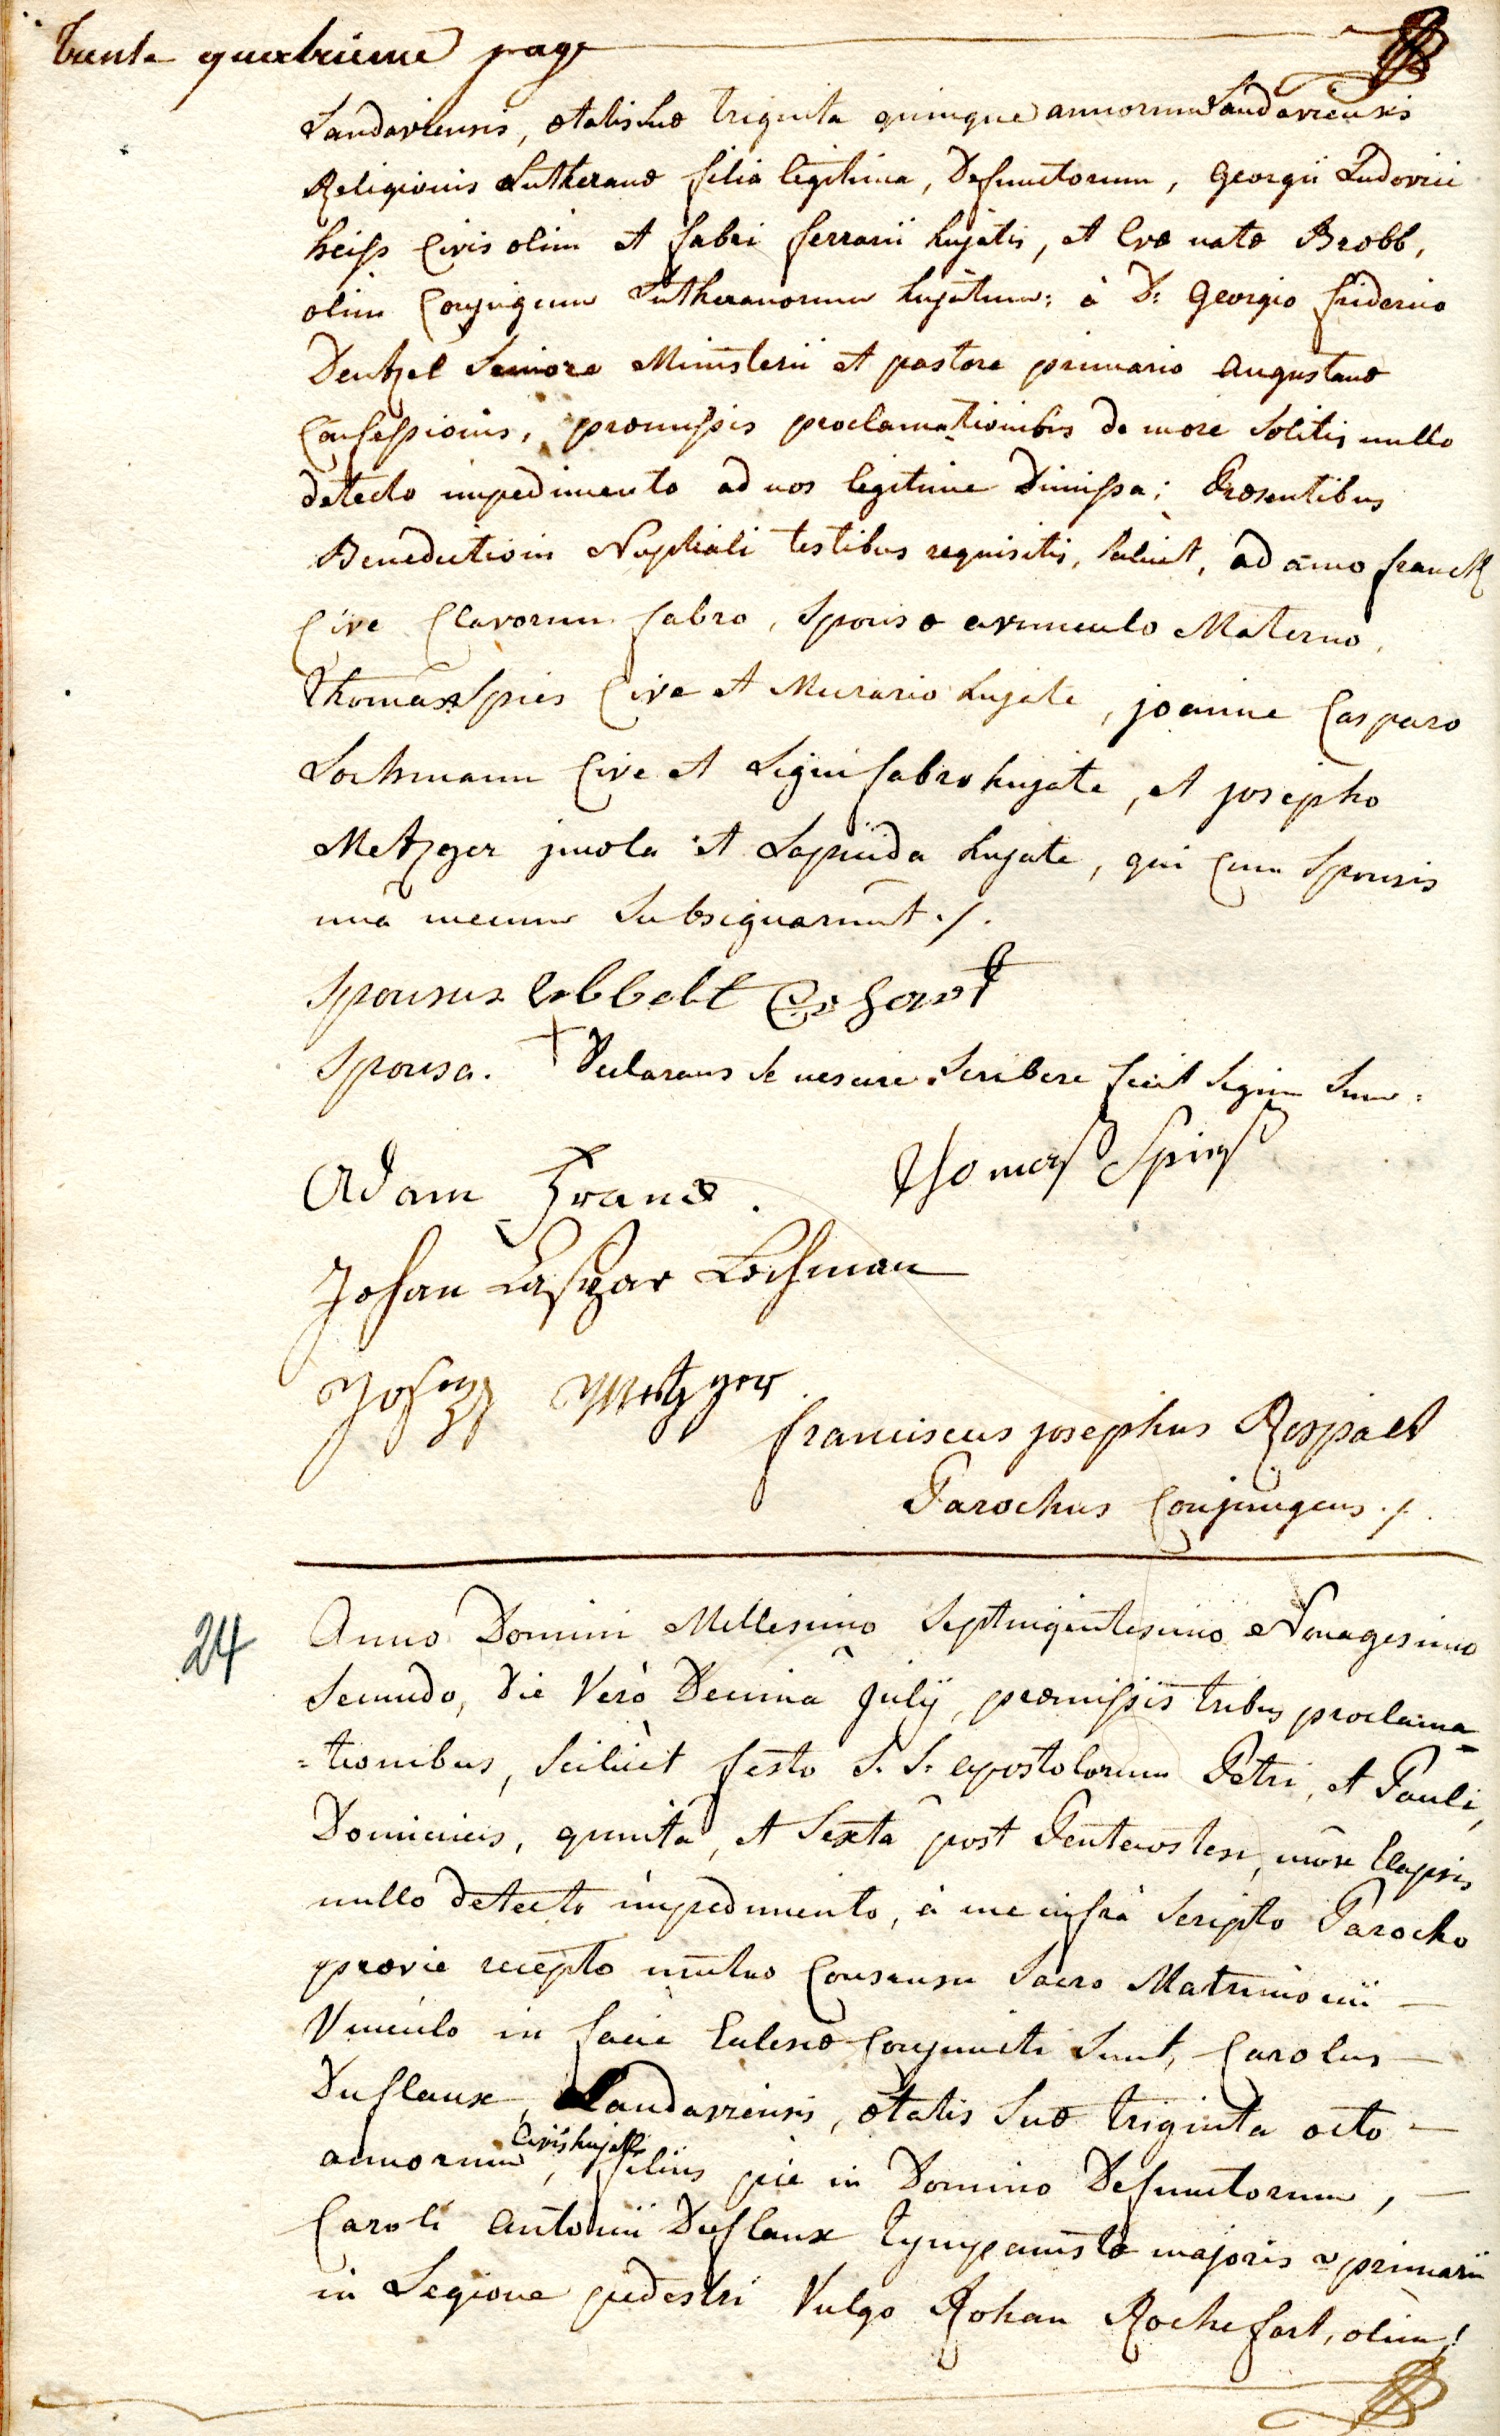 trente quatrieme page
Landaviensis, ætatis suæ triginta quinque annorum Landaviensis
Religionis Lutheranæ filia legitima, Defunctorum, Georgii Ludovici
heiss Civis olim et fabri ferrarii hujatis, et Evæ natæ Brobb,
olim Conjugum Lutheranorum hujatum: à D: Georgio friderico
Dentzel Seniore Ministerii et pastore primario augustanæ
Confessionis, præmissis proclamationibus de more Solitis nullo
detecto impedimento ad nos legitime Dimissa; Præsentibus
Benedictioni Nuptiali testibus requisitis, Scilicet, adamo franck
Cive Clavorum fabro, Sponsæ avunculo Materno,
Thoma Spies Cive et Murario hujate, joanne Casparo
Lochmann Cive et Lignifabro hujate, et josepho
Metzger jncola et Lapicida hujate, qui Cum Sponsis
unà mecum Subsignarunt ./.
Sponsus Erhart
Sponsa. + Declarans se nescire Scribere fecit Signum Suum:
Adam Franck. Thomas Spies
Johan Caspar Lochman
Joseph Metzger
franciscus josephus Rospiel
Parochus Conjungens ./.
24 Anno Domini Millesimo Septingintesimo Nonagesimo
Secundo, die Verò Decima Julÿ, præmissis tribus proclama
=tionibus, Scilicet festo S. S. apostolorum Petri, et Pauli,
Dominicis, quinta, et Sexta post Pentecosten, mox Elapsis
nullo detecto impedimento, à me infrà Scripto Parocho
prævie recepto mutuo Consensu Sacro Matrimonii —
Vinculo in facie Eclesiæ Conjuncti Sunt, Carolus —
Duflaux, Landaviensis, ætatis Suæ triginta octo —
annorum civis hujatis, filius piè in Domino Defunctorum, —
Caroli Antonii Duflaux tympanistæ majoris primarii
in Legione pedestri Vulgo Rohan Rochefort, olim!